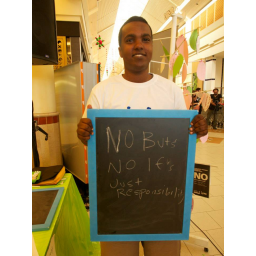 NO Buts
NO If's
Just
Responsibility
NO